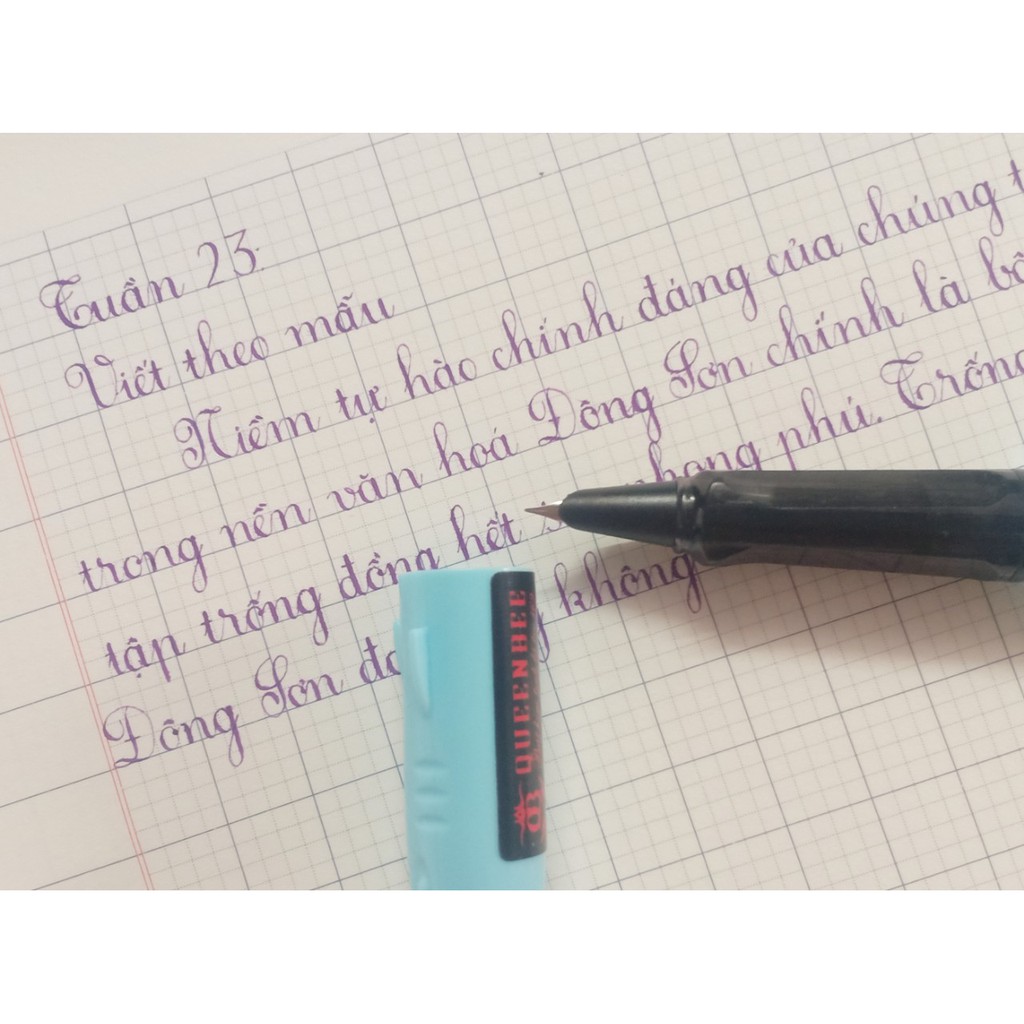 Tuần 23.
Viết theo mẫu
Niềm tự hào chính đáng của chúng
trong nền văn hoá Đông Sơn chính là
tập trống đồng hết phong phú. Trống
Đông Sơn không
QUEENBEE
QB